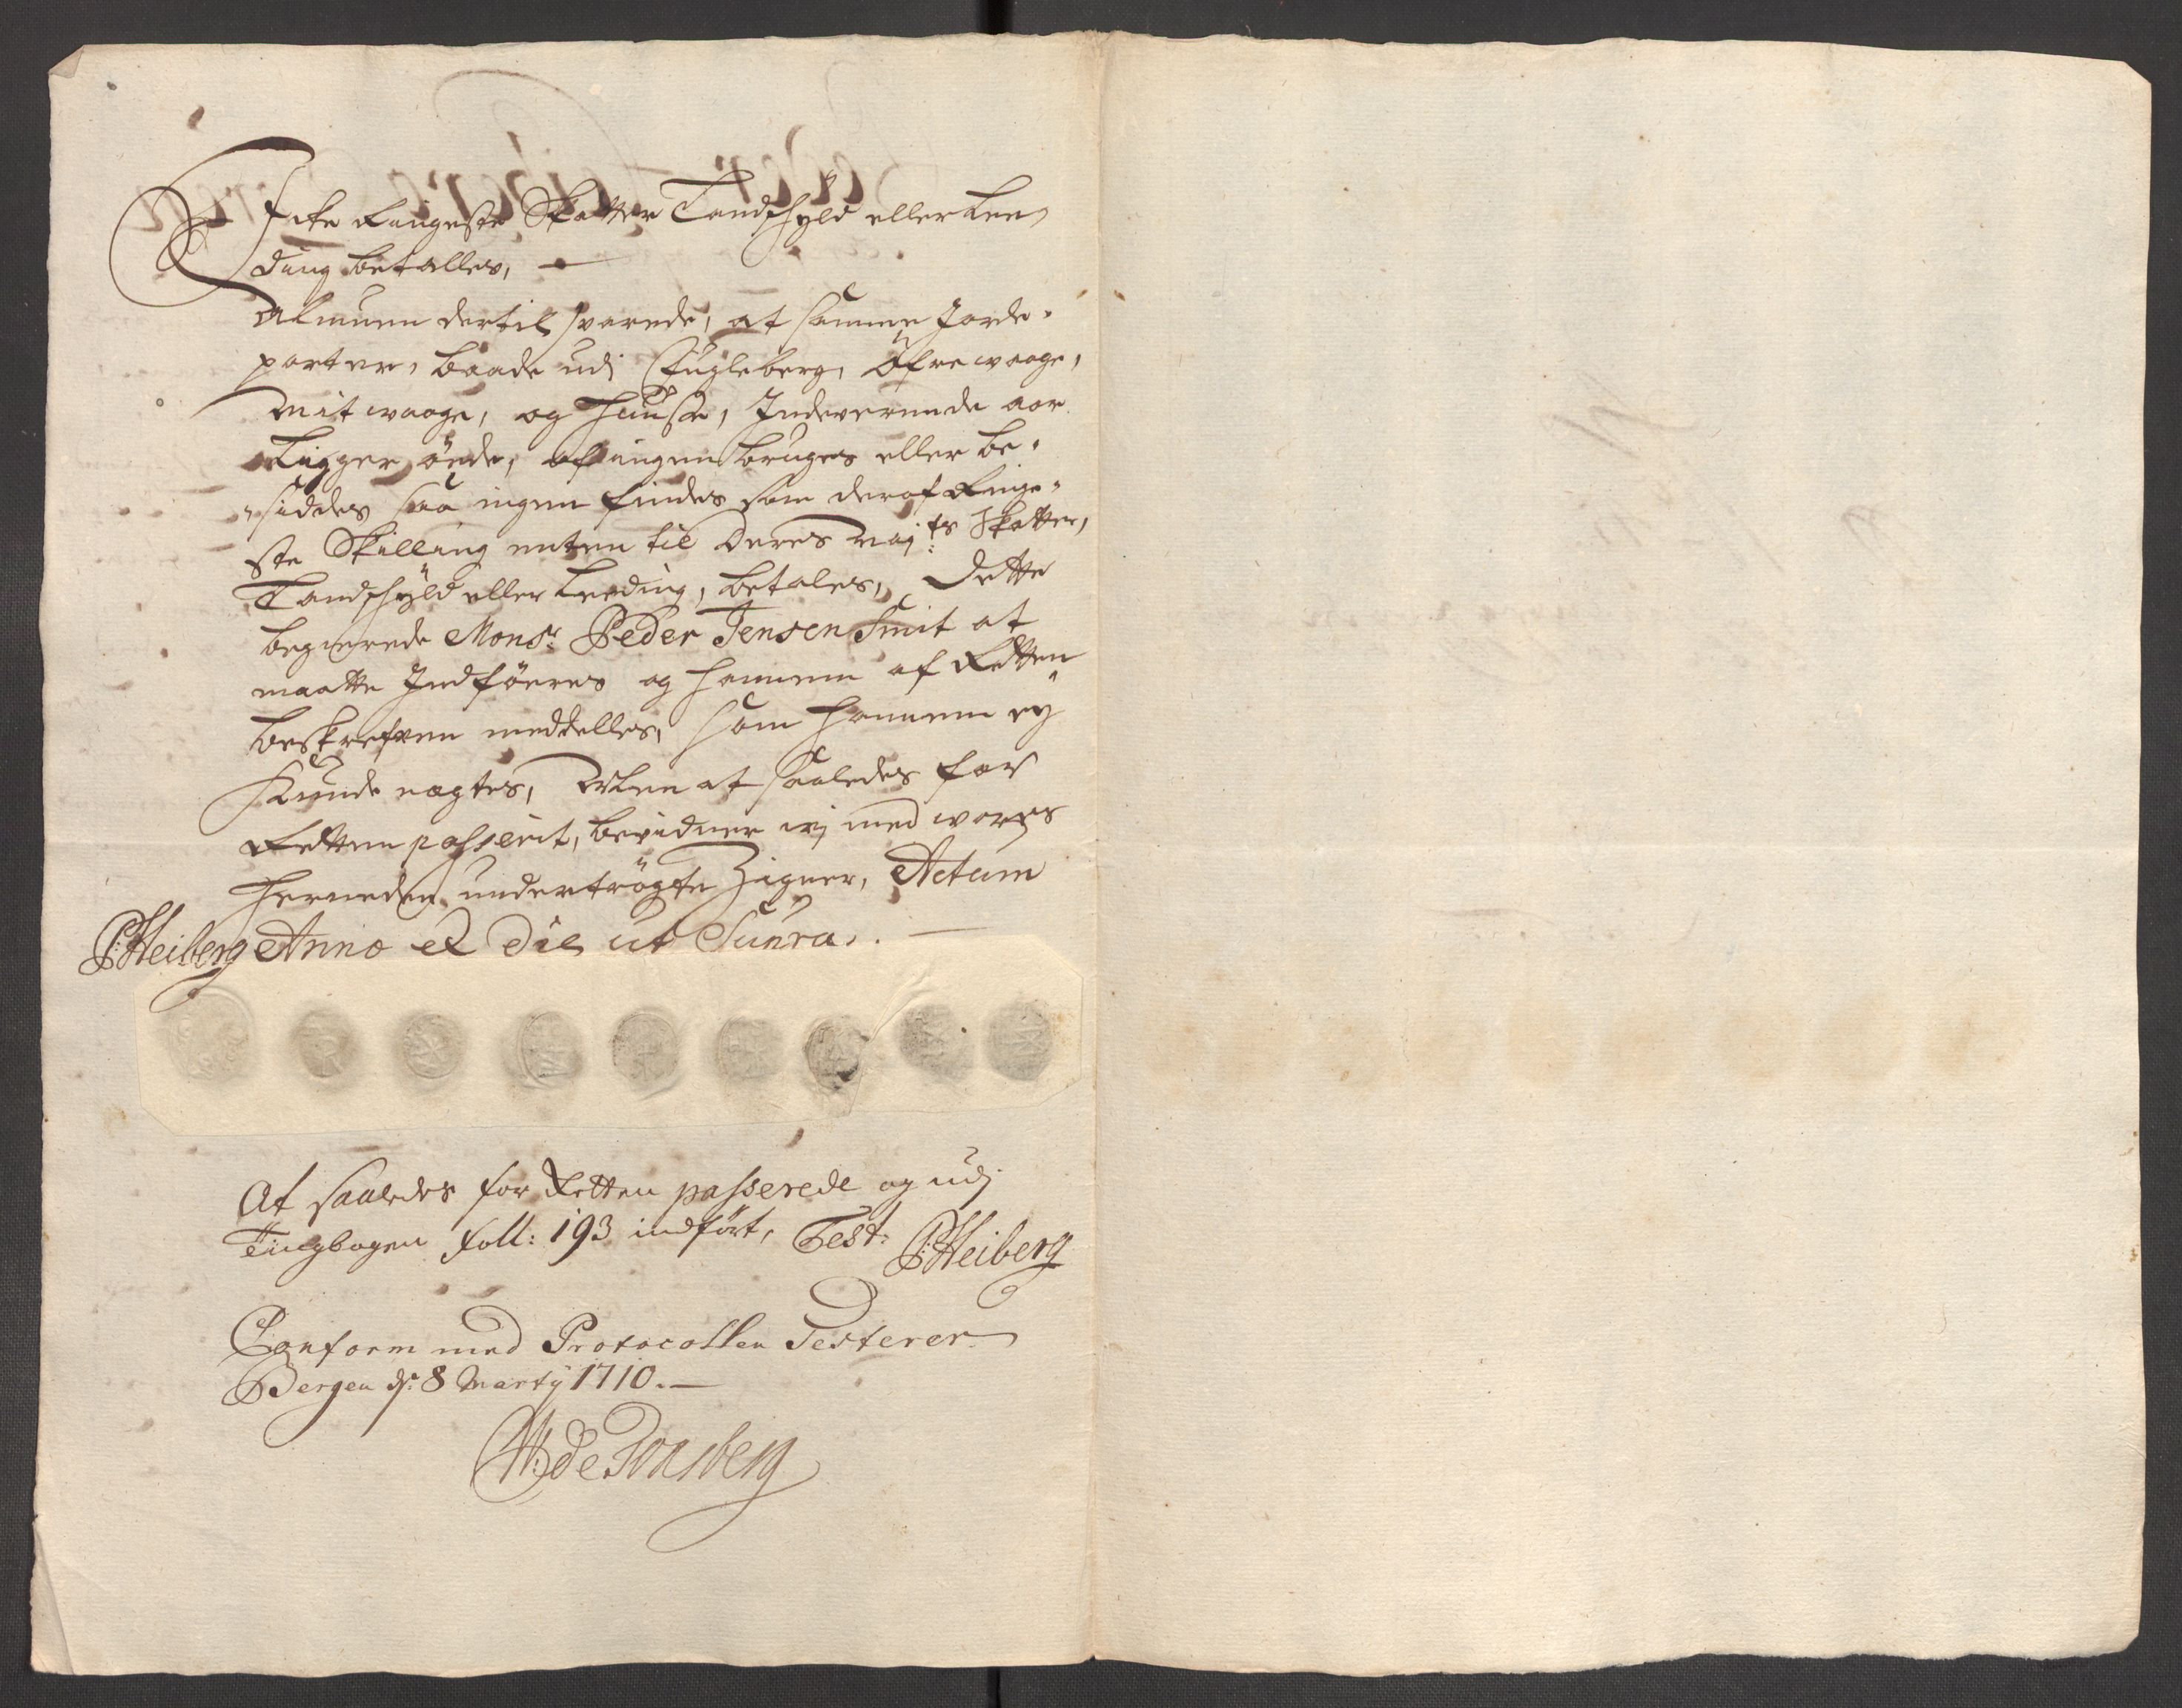 Icke Ringeste Skatter Landschyld eller Lee
ding betalles,
Almuen dertil svarede, at samme Jorde
parter, baade udj Fugleberg, Öfre waage,
Mit waage, og Hauße, Indeverende aar
Ligger öede, af ingen bruges eller be
siddes saa ingen findes som deraf Ringe
ste Skilling enten til Deres Maj:ts Skatter,
Landschyld eller Leeding, betales, Dette
begierede Monsr: Peder Jensen Smit at
maatte Indföeres og hannem af Retten
beskrefven meddelles, som hannem ey
Kunde nægtes, at saaledes for
Retten passerit, bevidner wj med worres
herneden undertrögte Zigner, Actum
P:Heiberg Anno et Die ut Supra.
At saaledes for Retten passerede og udj
Tingbogen foll: 193 indfört, Test: P:Heiberg
Conform med Protocollen Testerer
Bergen ds: 8 Martij 1710.